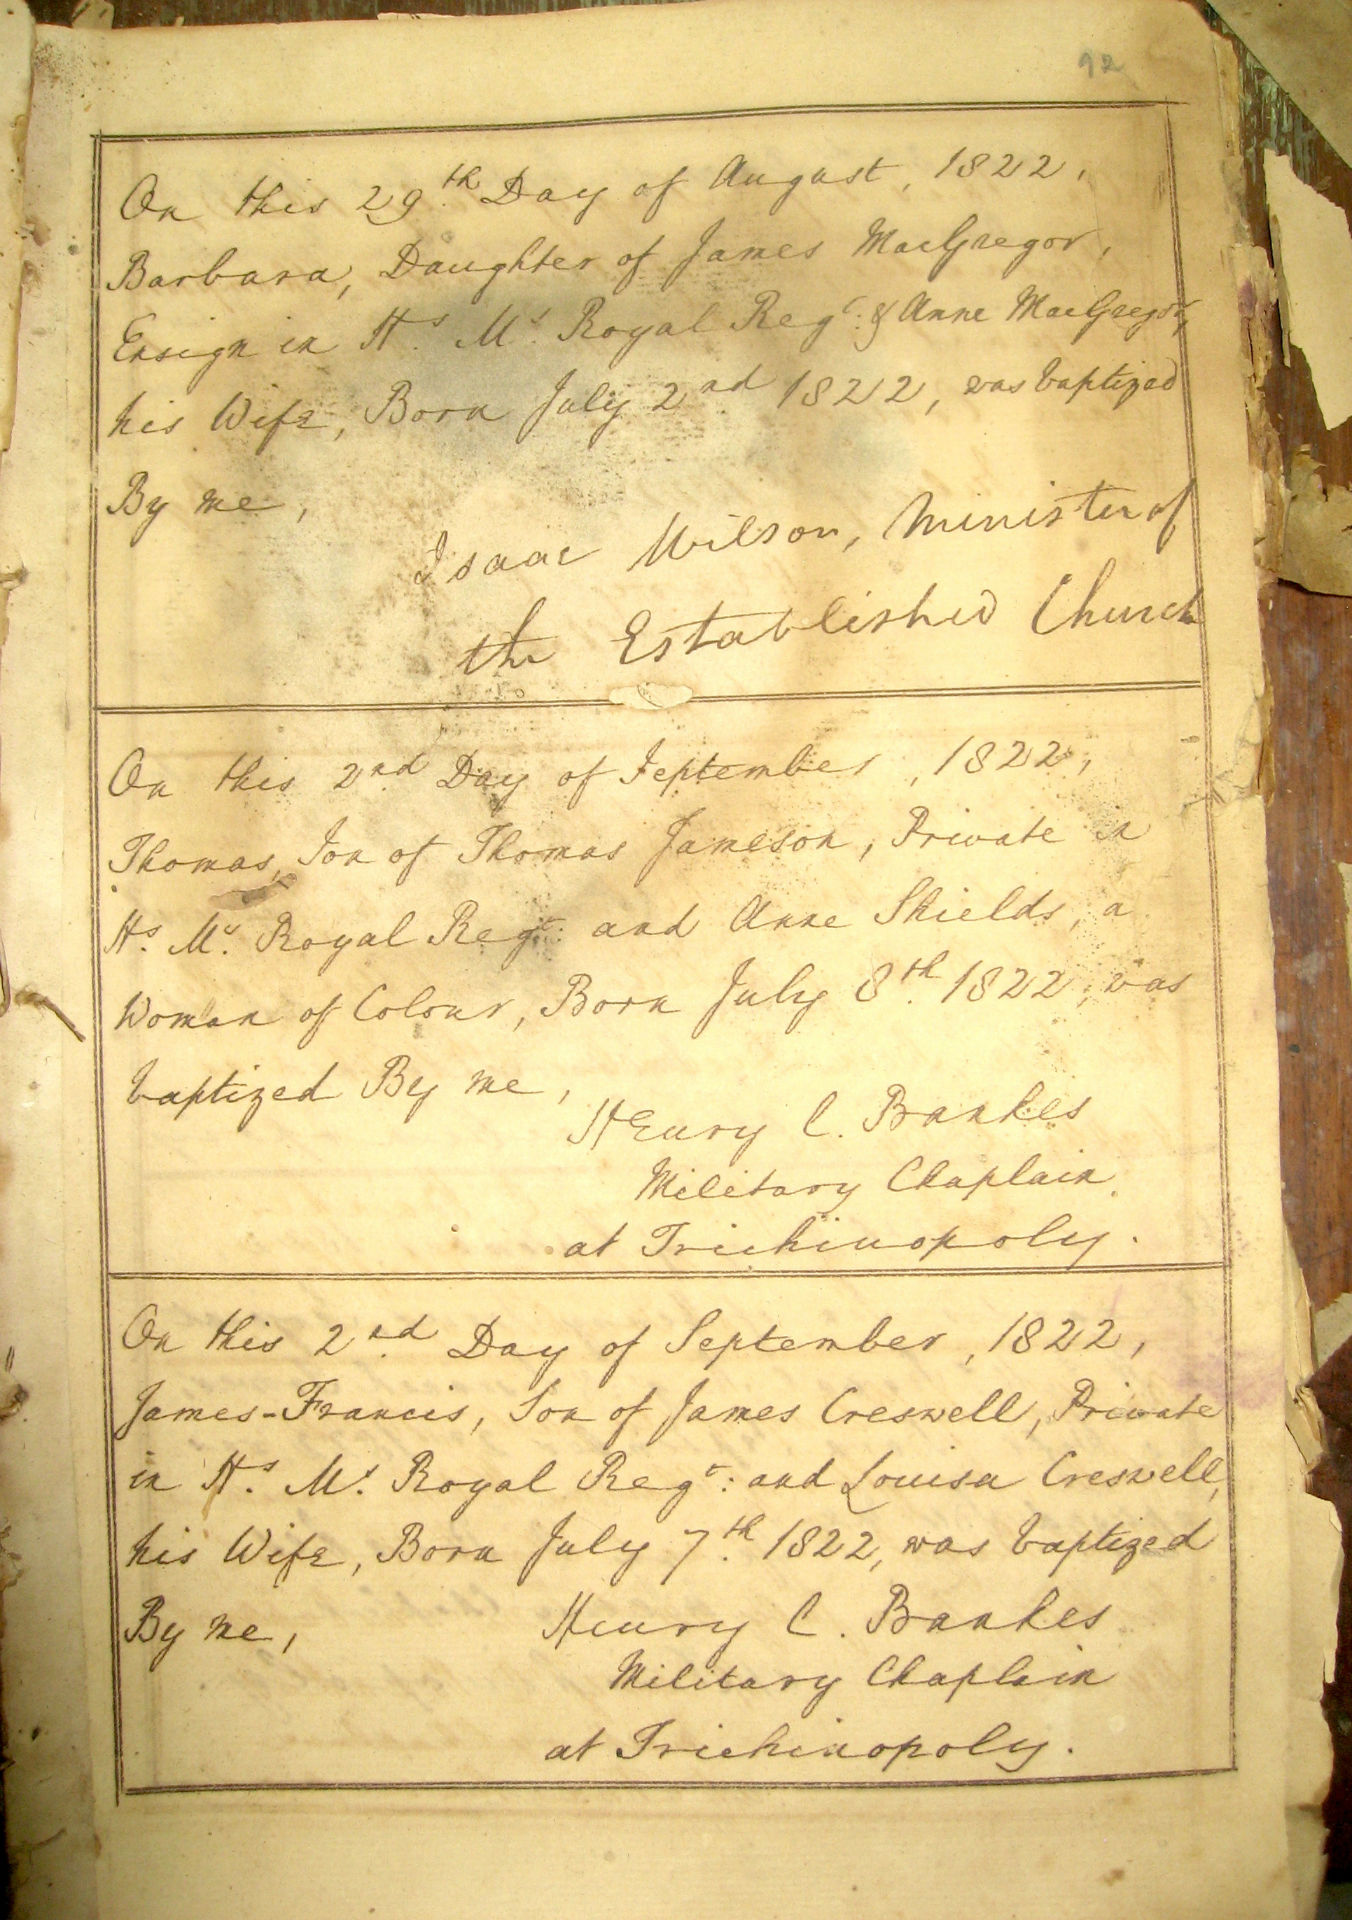 92
On this 29th Day of August, 1822,
Barbara, Daughter of James MacGregor,
Ensign in Hs. Ms. Royal Regt: & Anne MacGregor,
his Wife, Born July 2nd 1822, was baptized
By me,
Isaac Wilson, Minister of
the Established Church
On this 2nd Day of September, 1822,
Thomas, Son of Thomas Jameson, Private in
Hs. Ms. Royal Regt: and Anne Shields, a
Woman of Colour, Born July 8th. 1822, was
baptized By me,
Henry C. Bankes
Military Chaplain
at Trichinopoly.
On this 2nd. Day of September, 1822,
James-Francis, Son of James Creswell, Private
in Hs. Ms. Royal Regt: and Louisa Creswell,
his Wife, Born July 7th. 1822, was baptized
By me,
Henry C. Bankes
Military Chaplain
at Trichinopoly.